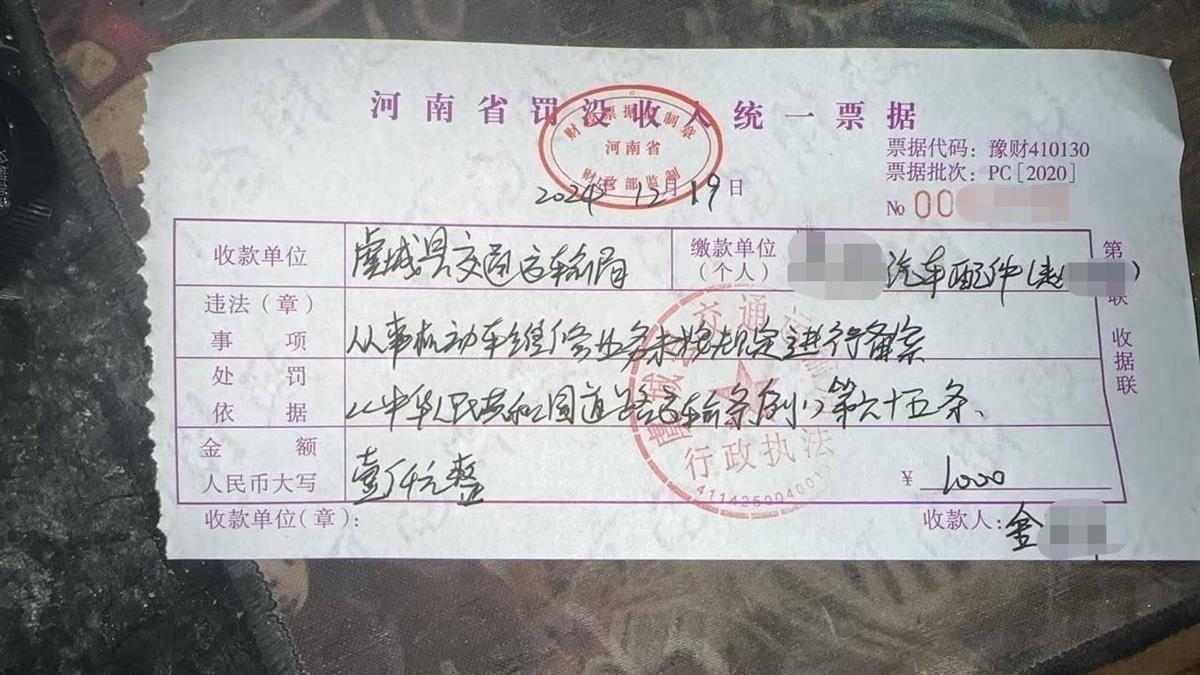 河南省罚没收入统一票据
财政票据监制章
河南省
财政部监制
票据代码：豫财410130
票据批次：PC[2020]
2024年12月19日
№ 00
收款单位 虞城县交通运输局 缴款单位（个人） 汽车配件(赵 )
违法（章）事项 从事机动车维修业务未按规定进行备案
处罚依据 《中华人民共和国道路运输条例》第六十五条、
金额人民币大写 壹仟元整 ￥ 1000
收款单位(章)： 收款人：金
联 收据联
行政执法